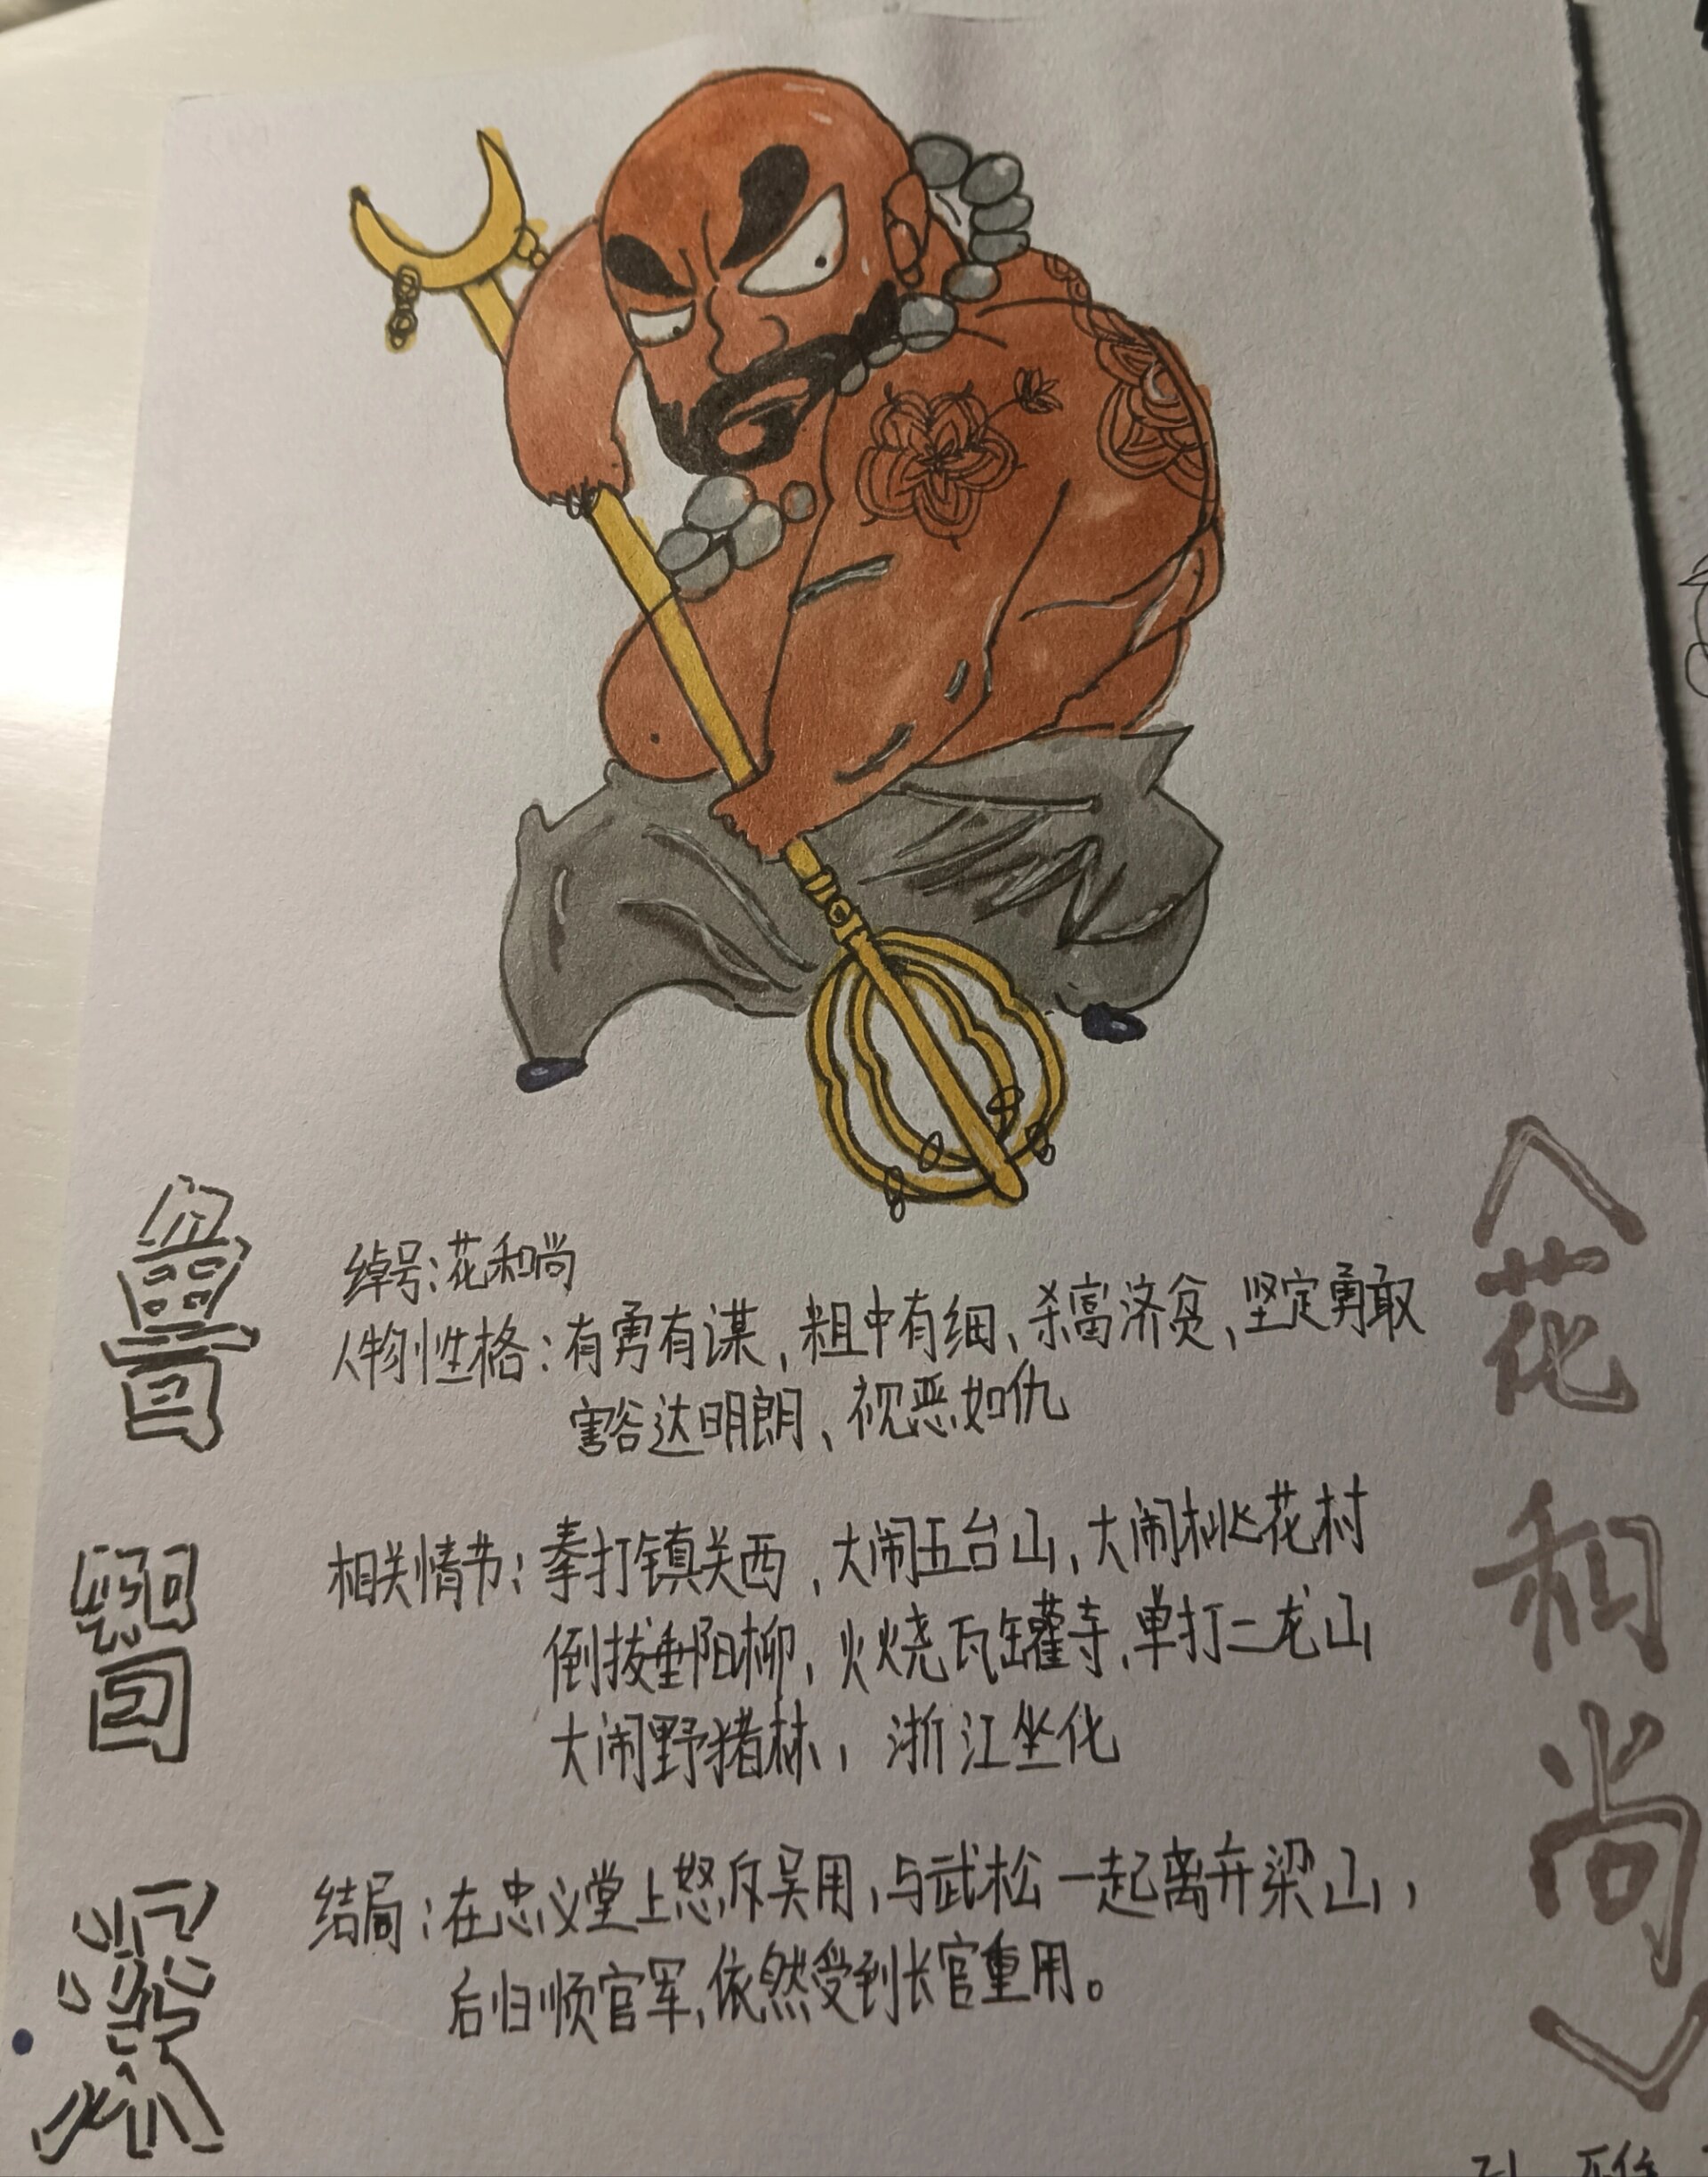 鲁智深
绰号：花和尚
人物性格：有勇有谋、粗中有细、杀富济贫、坚定勇敢
豁达明朗、视恶如仇
相关情节：拳打镇关西，大闹五台山，大闹桃花村
倒拔垂阳柳，火烧瓦罐寺，单打二龙山
大闹野猪林，浙江坐化
结局：在忠义堂上怒斥吴用，与武松一起离弃梁山，
后归顺官军，依然受到长官重用。
〈花和尚〉